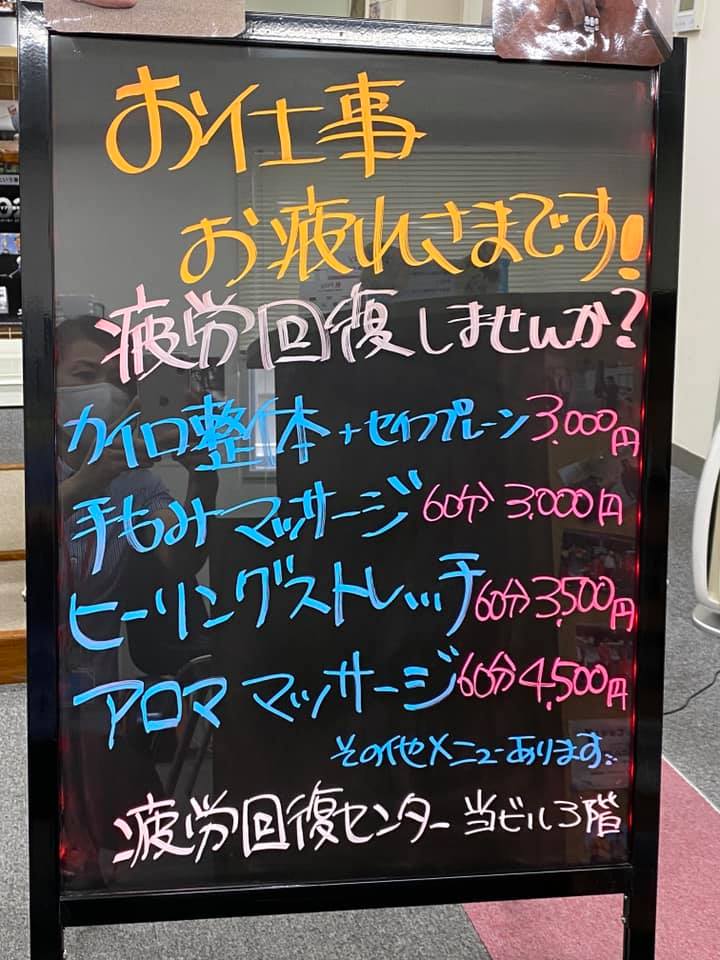 お仕事
お疲れさまです!
疲労回復しませんか?
カイロ整体+セイフプレーン 3,000円
手もみマッサージ 60分 3,000円
ヒーリングストレッチ 60分 3,500円
アロママッサージ 60分 4,500円
その他メニューあります。
疲労回復センター 当ビル3階